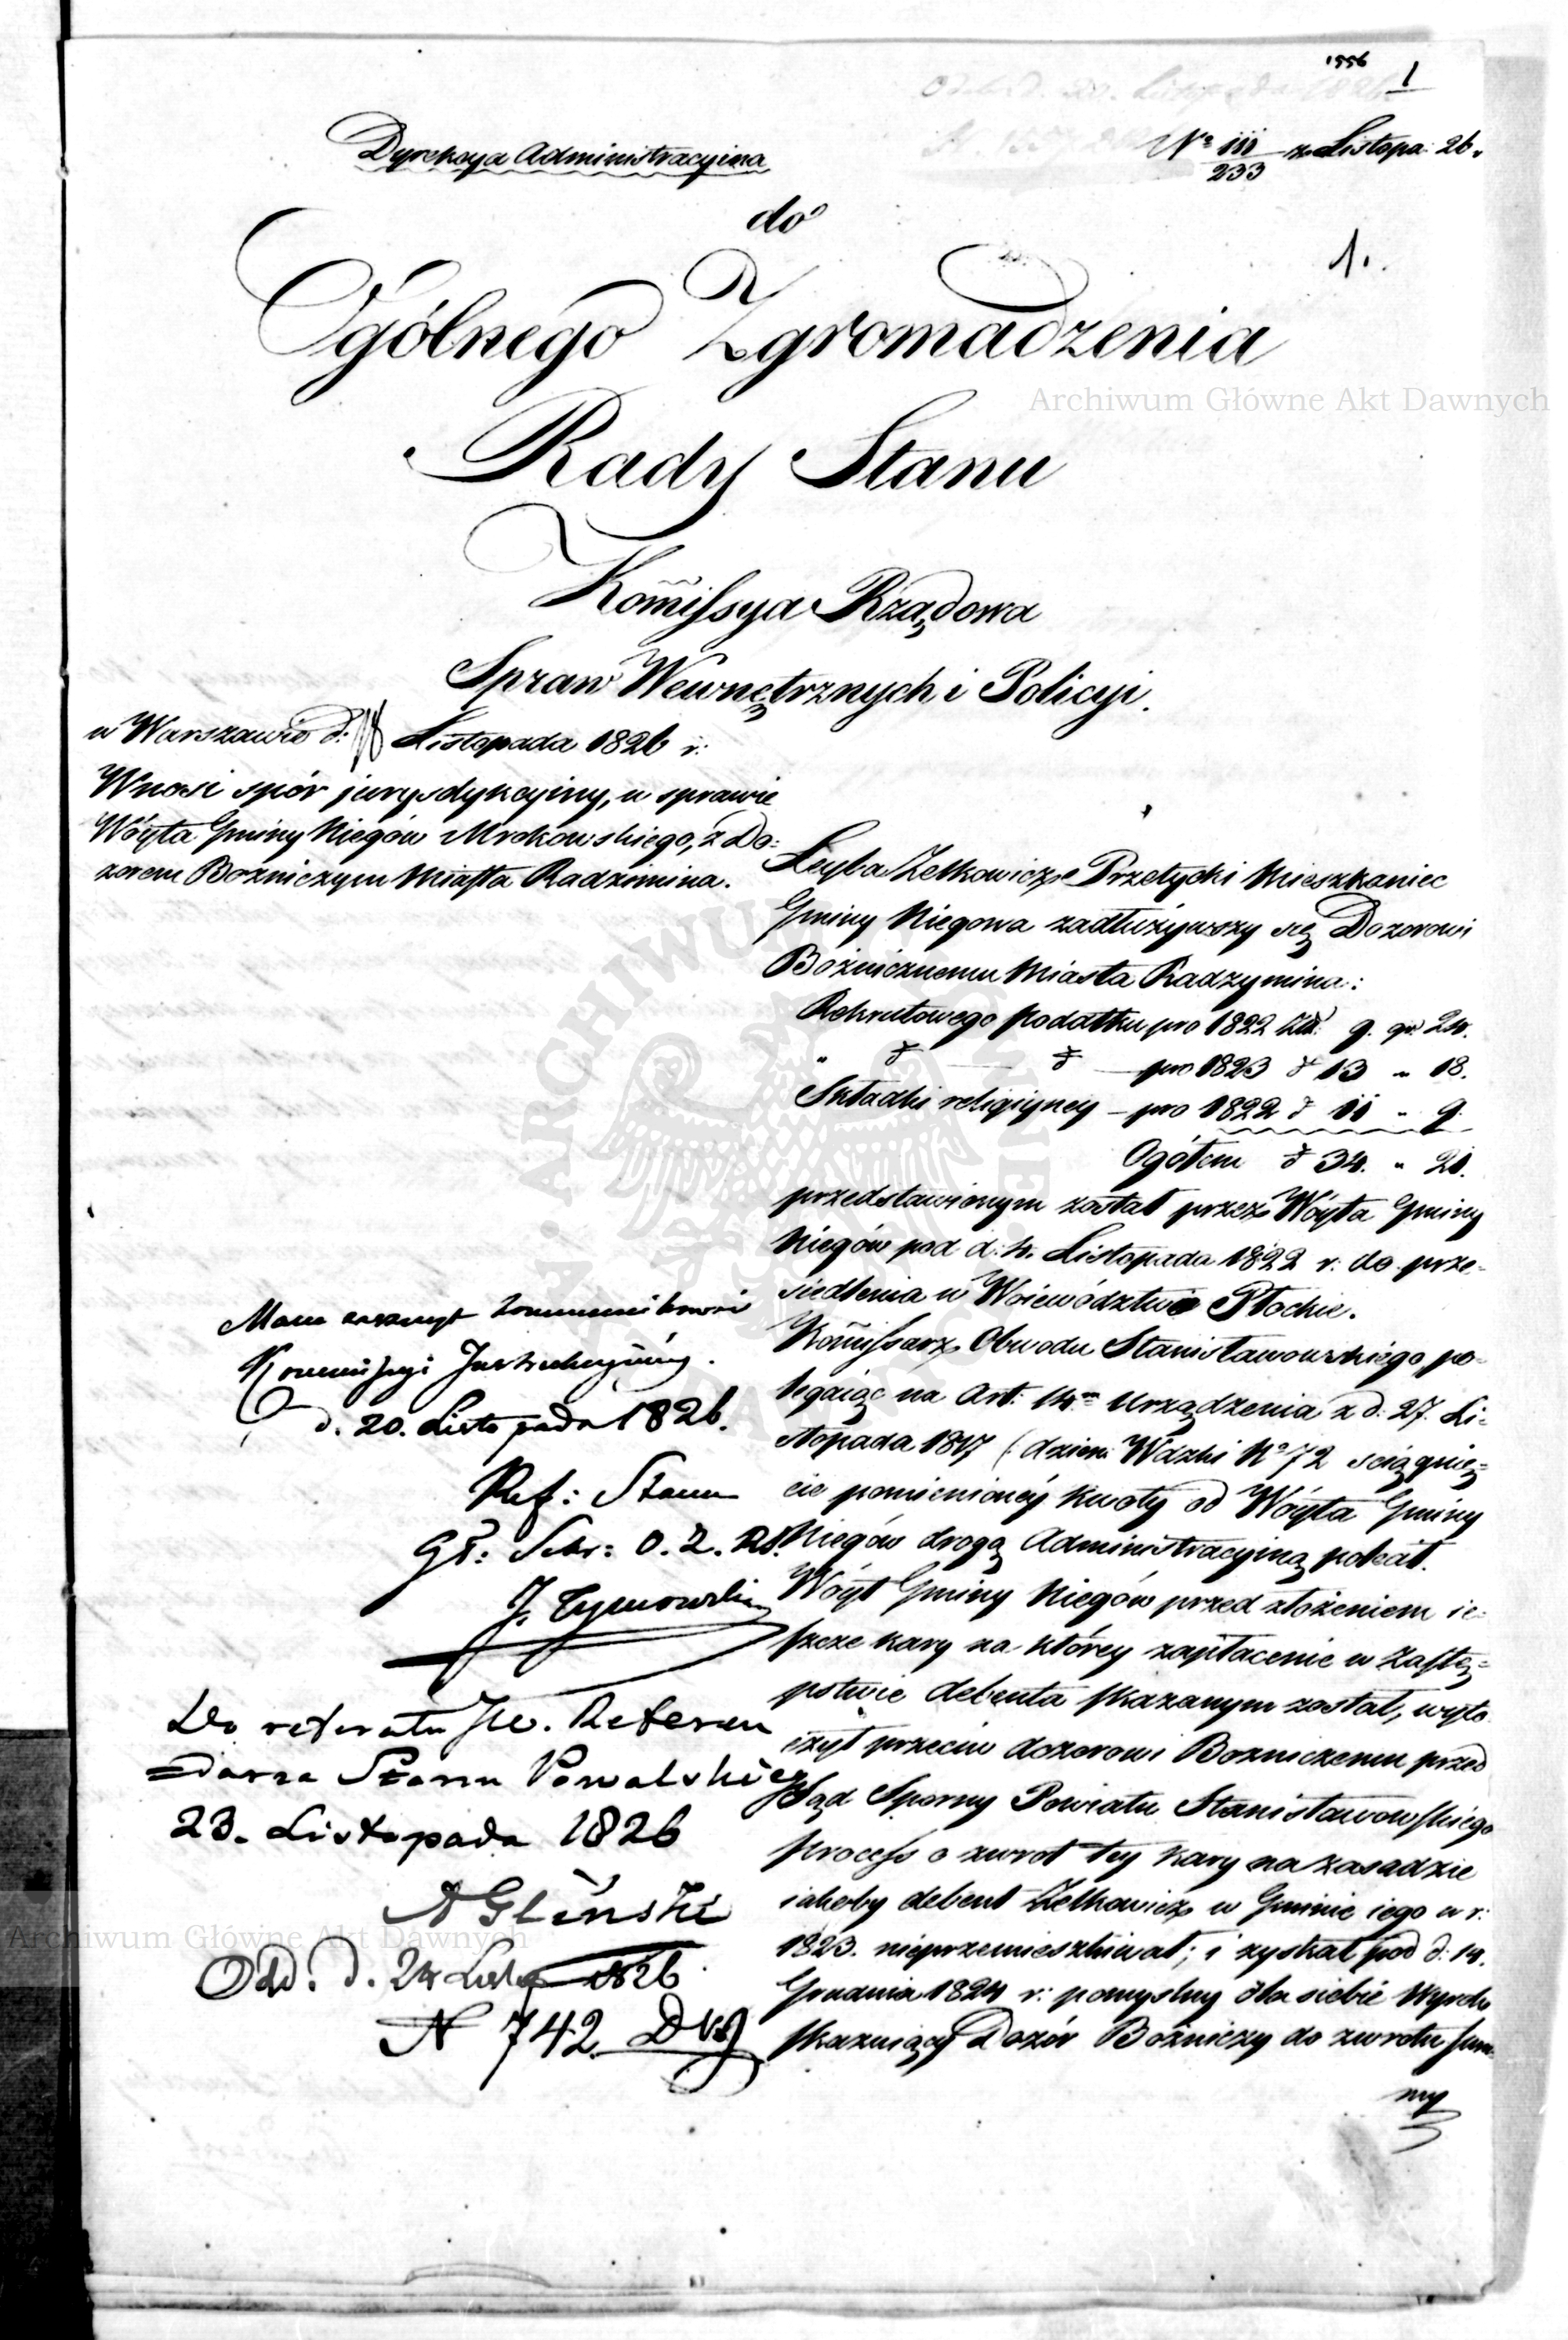 1556 1
Dyrekcya Administracyina
No 111/233 z Listopa: 26.
do
1.
Ogólnego Zgromadzenia
Rady Stanu
Kom̃issya Rządowa
Spraw Wewnętrznych i Policyi.
w Warszawie d: 18 Listopada 1826 r:
Wnosi spór jurysdykcyiny, w sprawie
Wóyta Gminy Niegów Mrokowskiego, z Do=
zorem Bożniczym Miasta Radzimina.
Leyba Zelkowicz Przetycki Mieszkaniec
Gminy Niegowa zadłużywszy się Dozorowi
Bożnicznemu Miasta Radzymina:
Rekrutowego podatku pro 1822 Złł: 9. gr. 24.
" d° — d° — pro 1823 d° 13 " 18.
Składki religiyney — pro 1822 d° 11 " 9.
Ogółem d° 34. " 21.
przedstawionym został przez Wóyta Gminy
Niegów pod d. 4. Listopada 1822 r: do prze-
siedlenia w Województwo Płockie.
Kom̃issarz Obwodu Stanisławowskiego po-
legaiąc na Art: 14m Urządzenia z d. 27. Li-
stopada 1817 (: dzien: Wdzki No 72 ściągnię=
cie pomienioney kwoty od Wóyta Gminy
Niegów drogą Administracyiną polecił.
Wóyt Gminy Niegów przed złożeniem ie=
szcze kary na którey zapłacenie w zastę=
pstwie debenta skazanym został, wyto
czył przeciw dozorowi Bożniczemu przed
Sąd Sporny Powiatu Stanisławowskiego
process o zwrot tey kary na zasadzie
iakoby debent Zelkowicz w Gminie iego w r:
1823. nieprzemieszkiwał; i zyskał pod d: 14.
Grudnia 1824 r: pomyslny dla siebie Wyrok
skazuiący Dozór Bożniczy do zwrotu sum-
my
Mam zaszczyt kommunikować
Kommissyi Instrukcyiney.
d. 20. Listopada 1826.
Ref: Stanu
Gł: Sekr: O. Z. RS.
J. Tymowski
Do referatu JW. Referen
=darza Stanu Kowalskiego
23. Listopada 1826
A Gliński
Odd. d. 24 Listop 1826.
N 742
Archiwum Główne Akt Dawnych
Archiwum Główne Akt Dawnych